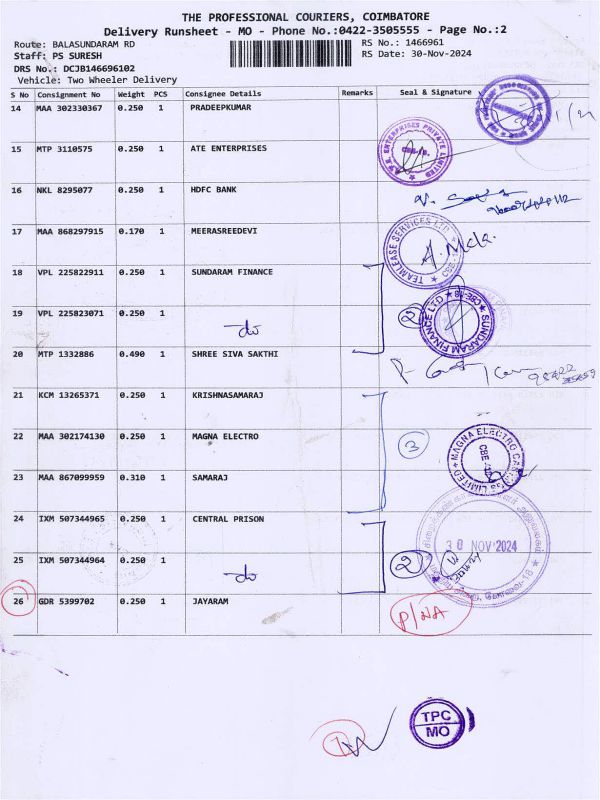 THE PROFESSIONAL COURIERS, COIMBATORE
Delivery Runsheet - MO - Phone No.:0422-3505555 - Page No.:2
Route: BALASUNDARAM RD RS No.: 1466961
Staff: PS SURESH RS Date: 30-Nov-2024
DRS No.: DCJB146696102
Vehicle: Two Wheeler Delivery
S No Consignment No Weight PCS Consignee Details Remarks Seal & Signature
14 MAA 302330367 0.250 1 PRADEEPKUMAR
15 MTP 3110575 0.250 1 ATE ENTERPRISES
ENTERPRISES PRIVATE LIMITED
16 NKL 8295077 0.250 1 HDFC BANK
17 MAA 868297915 0.170 1 MEERASREEDEVI
TEAMLEASE SERVICES LTD
A. Mela
18 VPL 225822911 0.250 1 SUNDARAM FINANCE
19 VPL 225823071 0.250 1 do
2
SUNDARAM FINANCE LTD CBE-18
20 MTP 1332886 0.490 1 SHREE SIVA SAKTHI
21 KCM 13265371 0.250 1 KRISHNASAMARAJ
22 MAA 302174130 0.250 1 MAGNA ELECTRO
3
MAGNA ELECTRO LIMITED
CBE
23 MAA 867099959 0.310 1 SAMARAJ
24 IXM 507344965 0.250 1 CENTRAL PRISON
30 NOV 2024
25 IXM 507344964 0.250 1 do
2
26 GDR 5399702 0.250 1 JAYARAM
P/NA
TPC
MO